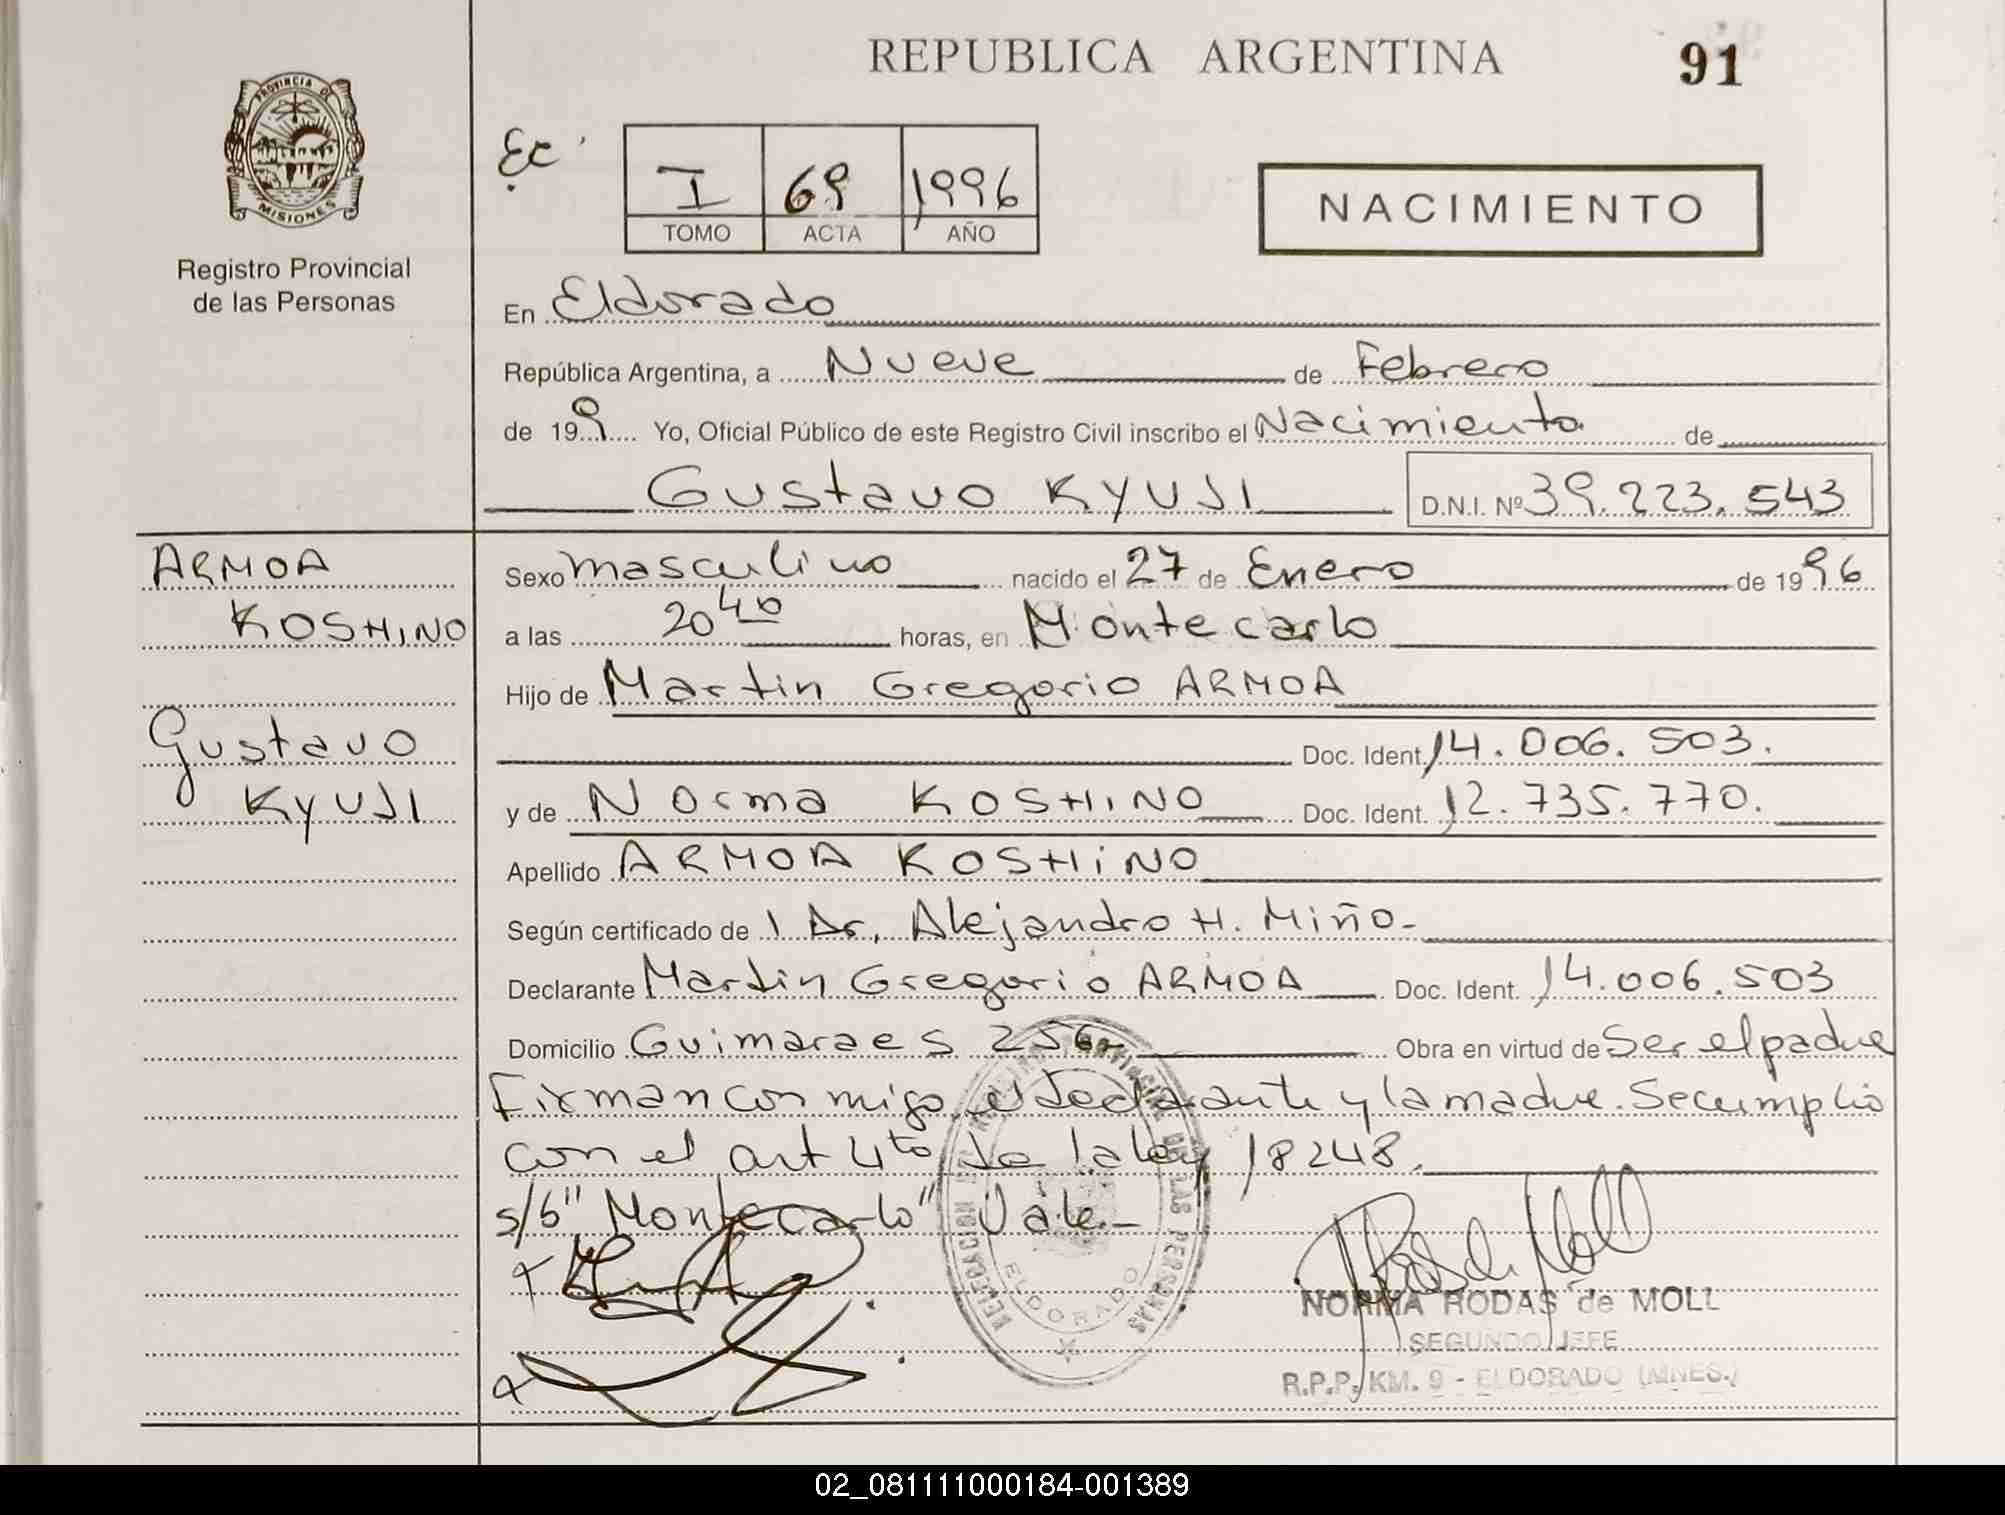 REPUBLICA ARGENTINA
91
PROVINCIA DE
MISIONES
Registro Provincial
de las Personas
I 69 1996
TOMO ACTA AÑO
NACIMIENTO
En Eldorado
República Argentina, a Nueve de Febrero
de 199 Yo, Oficial Público de este Registro Civil inscribo el Nacimiento de
Gustavo KYUJI D.N.I. Nº 39.223.543
ARMOA
KOSHINO
Gustavo
KYUJI
Sexo masculino nacido el 27 de Enero de 1996
a las 20 40 horas, en Montecarlo
Hijo de Martin Gregorio ARMOA
Doc. Ident. 14.006.503.
y de Norma KOSHINO Doc. Ident. 12.735.770.
Apellido ARMOA KOSHINO
Según certificado de l Dr. Alejandro H. Miño-
Declarante Martin Gregorio ARMOA Doc. Ident. 14.006.503
Domicilio Guimaraes 256- Obra en virtud de Ser el padre
Firman con migo el declarante y la madre. Se cumplio
con el art 4to de la ley 18248.
s/b "Montecarlo" Vale.-
DELEGACION DEL REGISTRO PROVINCIAL DE LAS PERSONAS
ELDORADO
NORMA RODAS de MOLL
SEGUNDO JEFE
R.P.P. KM. 9 - ELDORADO (MNES.)
02_081111000184-001389